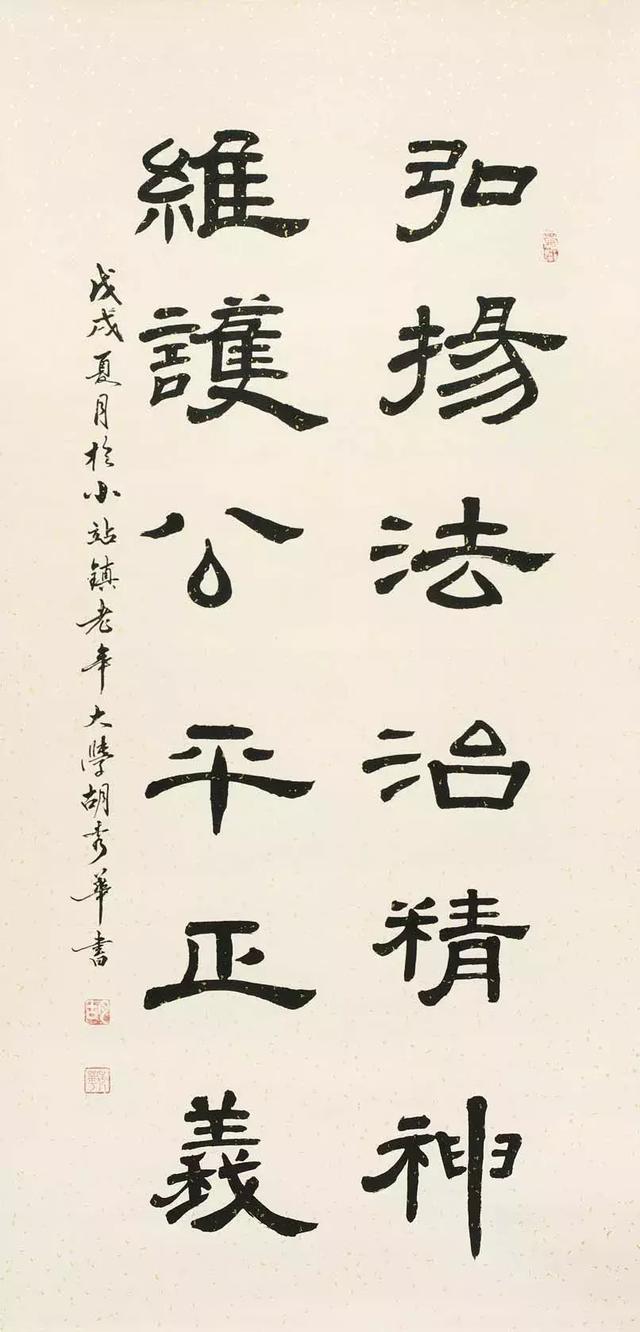 弘揚法治精神
維護公平正義
戊戌夏月於小站鎮老年大學胡秀華書